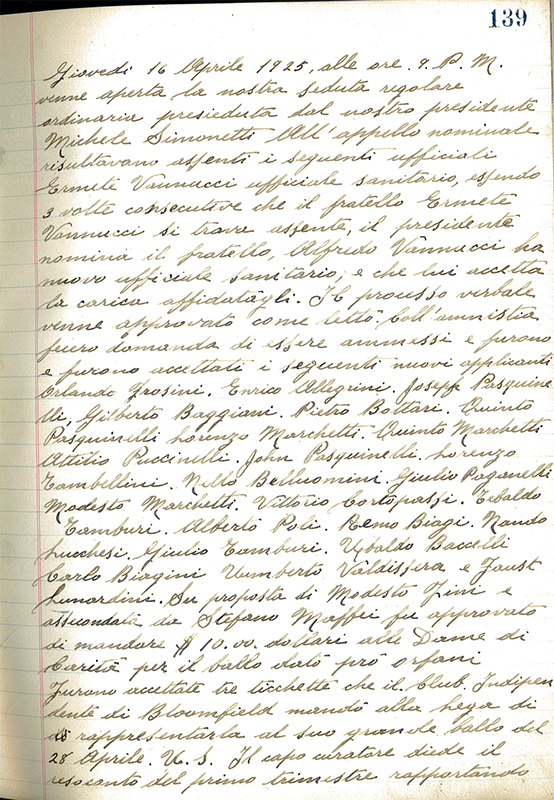 139
Giovedi 16 Aprile 1925, alle ore. 9. P. M.
venne aperta la nostra seduta regolare
ordinaria presieduta dal nostro presidente
Michele Simonetti All'appello nominale
risultavano assenti i seguenti ufficiali
Ermete Vannucci ufficiale sanitario, essendo
3 volte consecutive che il fratello Ermete
Vannucci si trova assente, il presidente
nomina il fratello, Alfredo Vannucci ha
nuovo ufficiale sanitario, e che lui accetta
la carica affidatagli. Il processo verbale
venne approvato come letto. Coll'amnistia
fecero domanda di essere ammessi e furono
e furono accettati i seguenti nuovi applicanti
Orlando Frosini. Enrico Allegrini. Joseph Pasquine
lli, Gilberto Baggiani. Pietro Bottari. Quinto
Pasquinilli Lorenzo Marchetti. Quinto Marchetti
Attilio Puccinelli. John Pasquinelli. Lorenzo
Tambellini. Nello Belluomini. Giulio Paganelli
Modesto Marchetti. Vittorio Cortopassi. Tebaldo
Tamburi. Alberto Poli. Remo Biagi. Nando
Lucchesi. Giulio Tamburi. Ubaldo Baccelli
Carlo Biagini Uumberto Valdissera e Faust
Lunardini. Su proposta di Modesto Zini e
assecondata da Stefano Maffei fu approvato
di mandare $ 10.00. dollari alle Dame di
Carità per il ballo dato pro orfani
Furono accettate tre ticchette che il Club. Indipen
dente di Bloomfield mandò alla Lega di
rappresentarla al suo grande ballo del
28 Aprile. U. S. Il capo curatore diede il
resoconto del primo trimestre rapportando